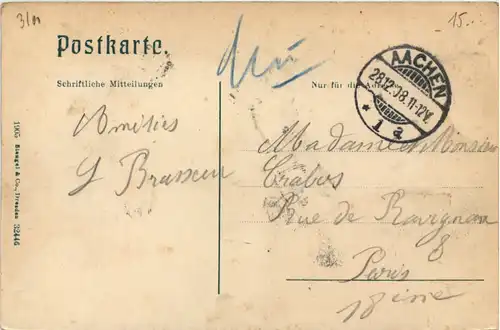 3/01
15.-
Postkarte.
Schriftliche Mitteilungen
Nur für die Adresse
AACHEN
28.12.08.11-12V.
* 1 a
Amitiés
Madame et Monsieur
Crabos
Rue de Ravignan
8
Paris
18ème
1905 Stengel & Co., Dresden 32446